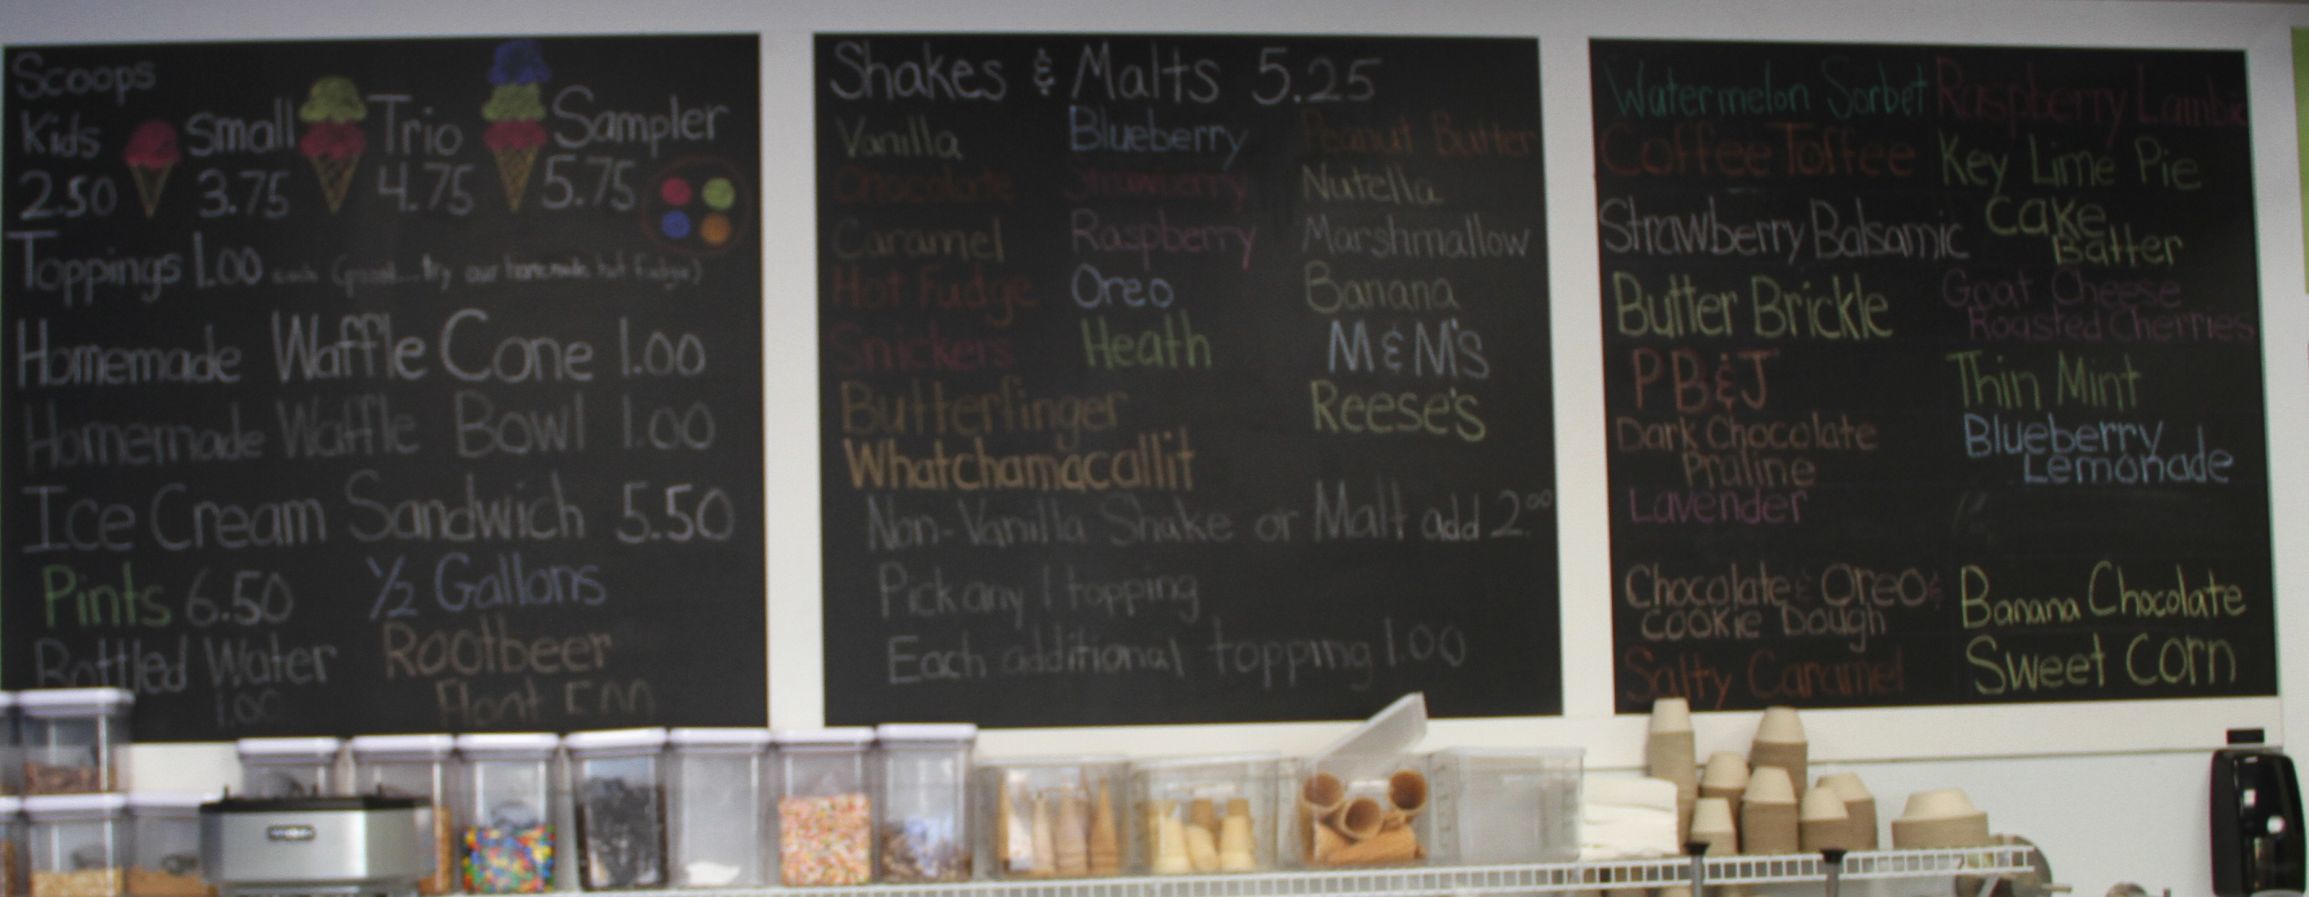 Scoops
Kids Small Trio Sampler
2.50 3.75 4.75 5.75
Toppings 1.00 each (psssst...try our homemade hot fudge)
Homemade Waffle Cone 1.00
Homemade Waffle Bowl 1.00
Ice Cream Sandwich 5.50
Pints 6.50 1/2 Gallons
Bottled Water Rootbeer
1.00 Float 5.00
Shakes & Malts 5.25
Vanilla Blueberry Peanut Butter
Chocolate Strawberry Nutella
Caramel Raspberry Marshmallow
Hot Fudge Oreo Banana
Snickers Heath M&M's
Butterfinger Reese's
Whatchamacallit
Non-Vanilla Shake or Malt add 2.00
Pick any 1 topping
Each additional topping 1.00
Watermelon Sorbet Raspberry Lambic
Coffee Toffee Key Lime Pie
Strawberry Balsamic Cake
Batter
Butter Brickle Goat Cheese
Roasted Cherries
PB&J Thin Mint
Dark Chocolate Blueberry
Praline Lemonade
Lavender
Chocolate & Oreo & Banana Chocolate
Cookie Dough
Salty Caramel Sweet Corn